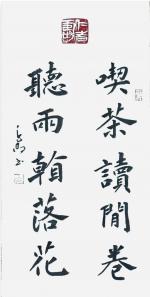 喫茶讀閒卷
聽雨翰落花